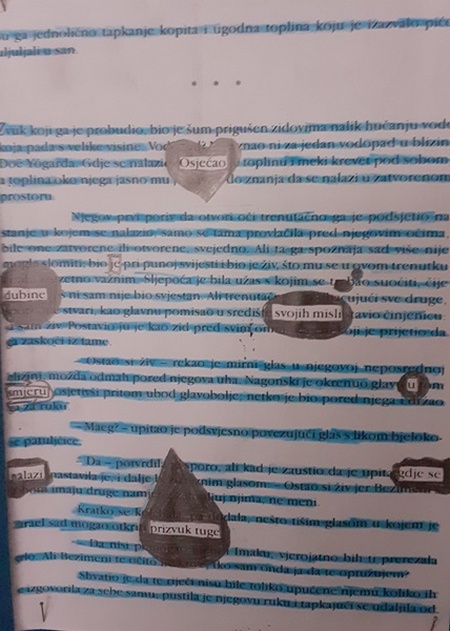 u ga jednolično tapkanje kopita i ugodna toplina koju je izazvalo piću
uljuljali u san.
Zvuk koji ga je probudio, bio je šum prigušen zidovima nalik hučanju vode
koja pada s velike visine. znao ni za jedan vodopad u blizin
Doč Yogarda. Gdje se nalazio Osjećao toplinu i meki krevet pod sobom
a toplina oko njega jasno mu do znanja da se nalazi u zatvorenom
prostoru.
Njegov prvi poriv da otvori oči trenutačno ga je podsjetio na
stanje u kojem se nalazio, samo se tama provlačila pred njegovim očima,
bile one zatvorene ili otvorene, svejedno. Ali ta ga spoznaja sad više nije
mogla slomiti, bio je pri punoj svijesti i bio je živ, što mu se u ovom trenutku
važnim. Sljepoća je bila užas s kojim se suočiti, čije
dubine ni sam nije bio svjestan. Ali sve druge,
stvari, kao glavnu pomisao u središte svojih misli činjenicu
živ. Postavio ju je kao zid pred svim je prijetio da
ga zaskoči iz tame.
– Ostao si živ – rekao je mirni glas u njegovoj neposrednoj
blizini, možda odmah pored njegova uha. Nagonski je okrenuo glavu u tom
smjeru osjetivši pritom ubod glavobolje, netko je bio pored njega i držao
ga za ruku.
– Maeg? – upitao je podsvjesno povezujući glas s likom bjeloko-
se patuljčice.
– Da – potvrdila ali kad je zaustio da je upita gdje se
nalazi nastavila je, i dalje glasom – Ostao si živ jer Bezimeni
imaju druge njima, ne meni.
Kratko se nešto tišim glasom u kojem je
sad mogao prizvuk tuge
– Da nisi Imaku, vjerojatno bih ti prerezala
grlo. Ali Bezimeni te očito Ako sam onda ja da te optužujem?
Shvatio je da te riječi nisu bile toliko upućene njemu koliko ih
e izgovorila za sebe samu, pustila je njegovu ruku i tapkajući se udaljila od